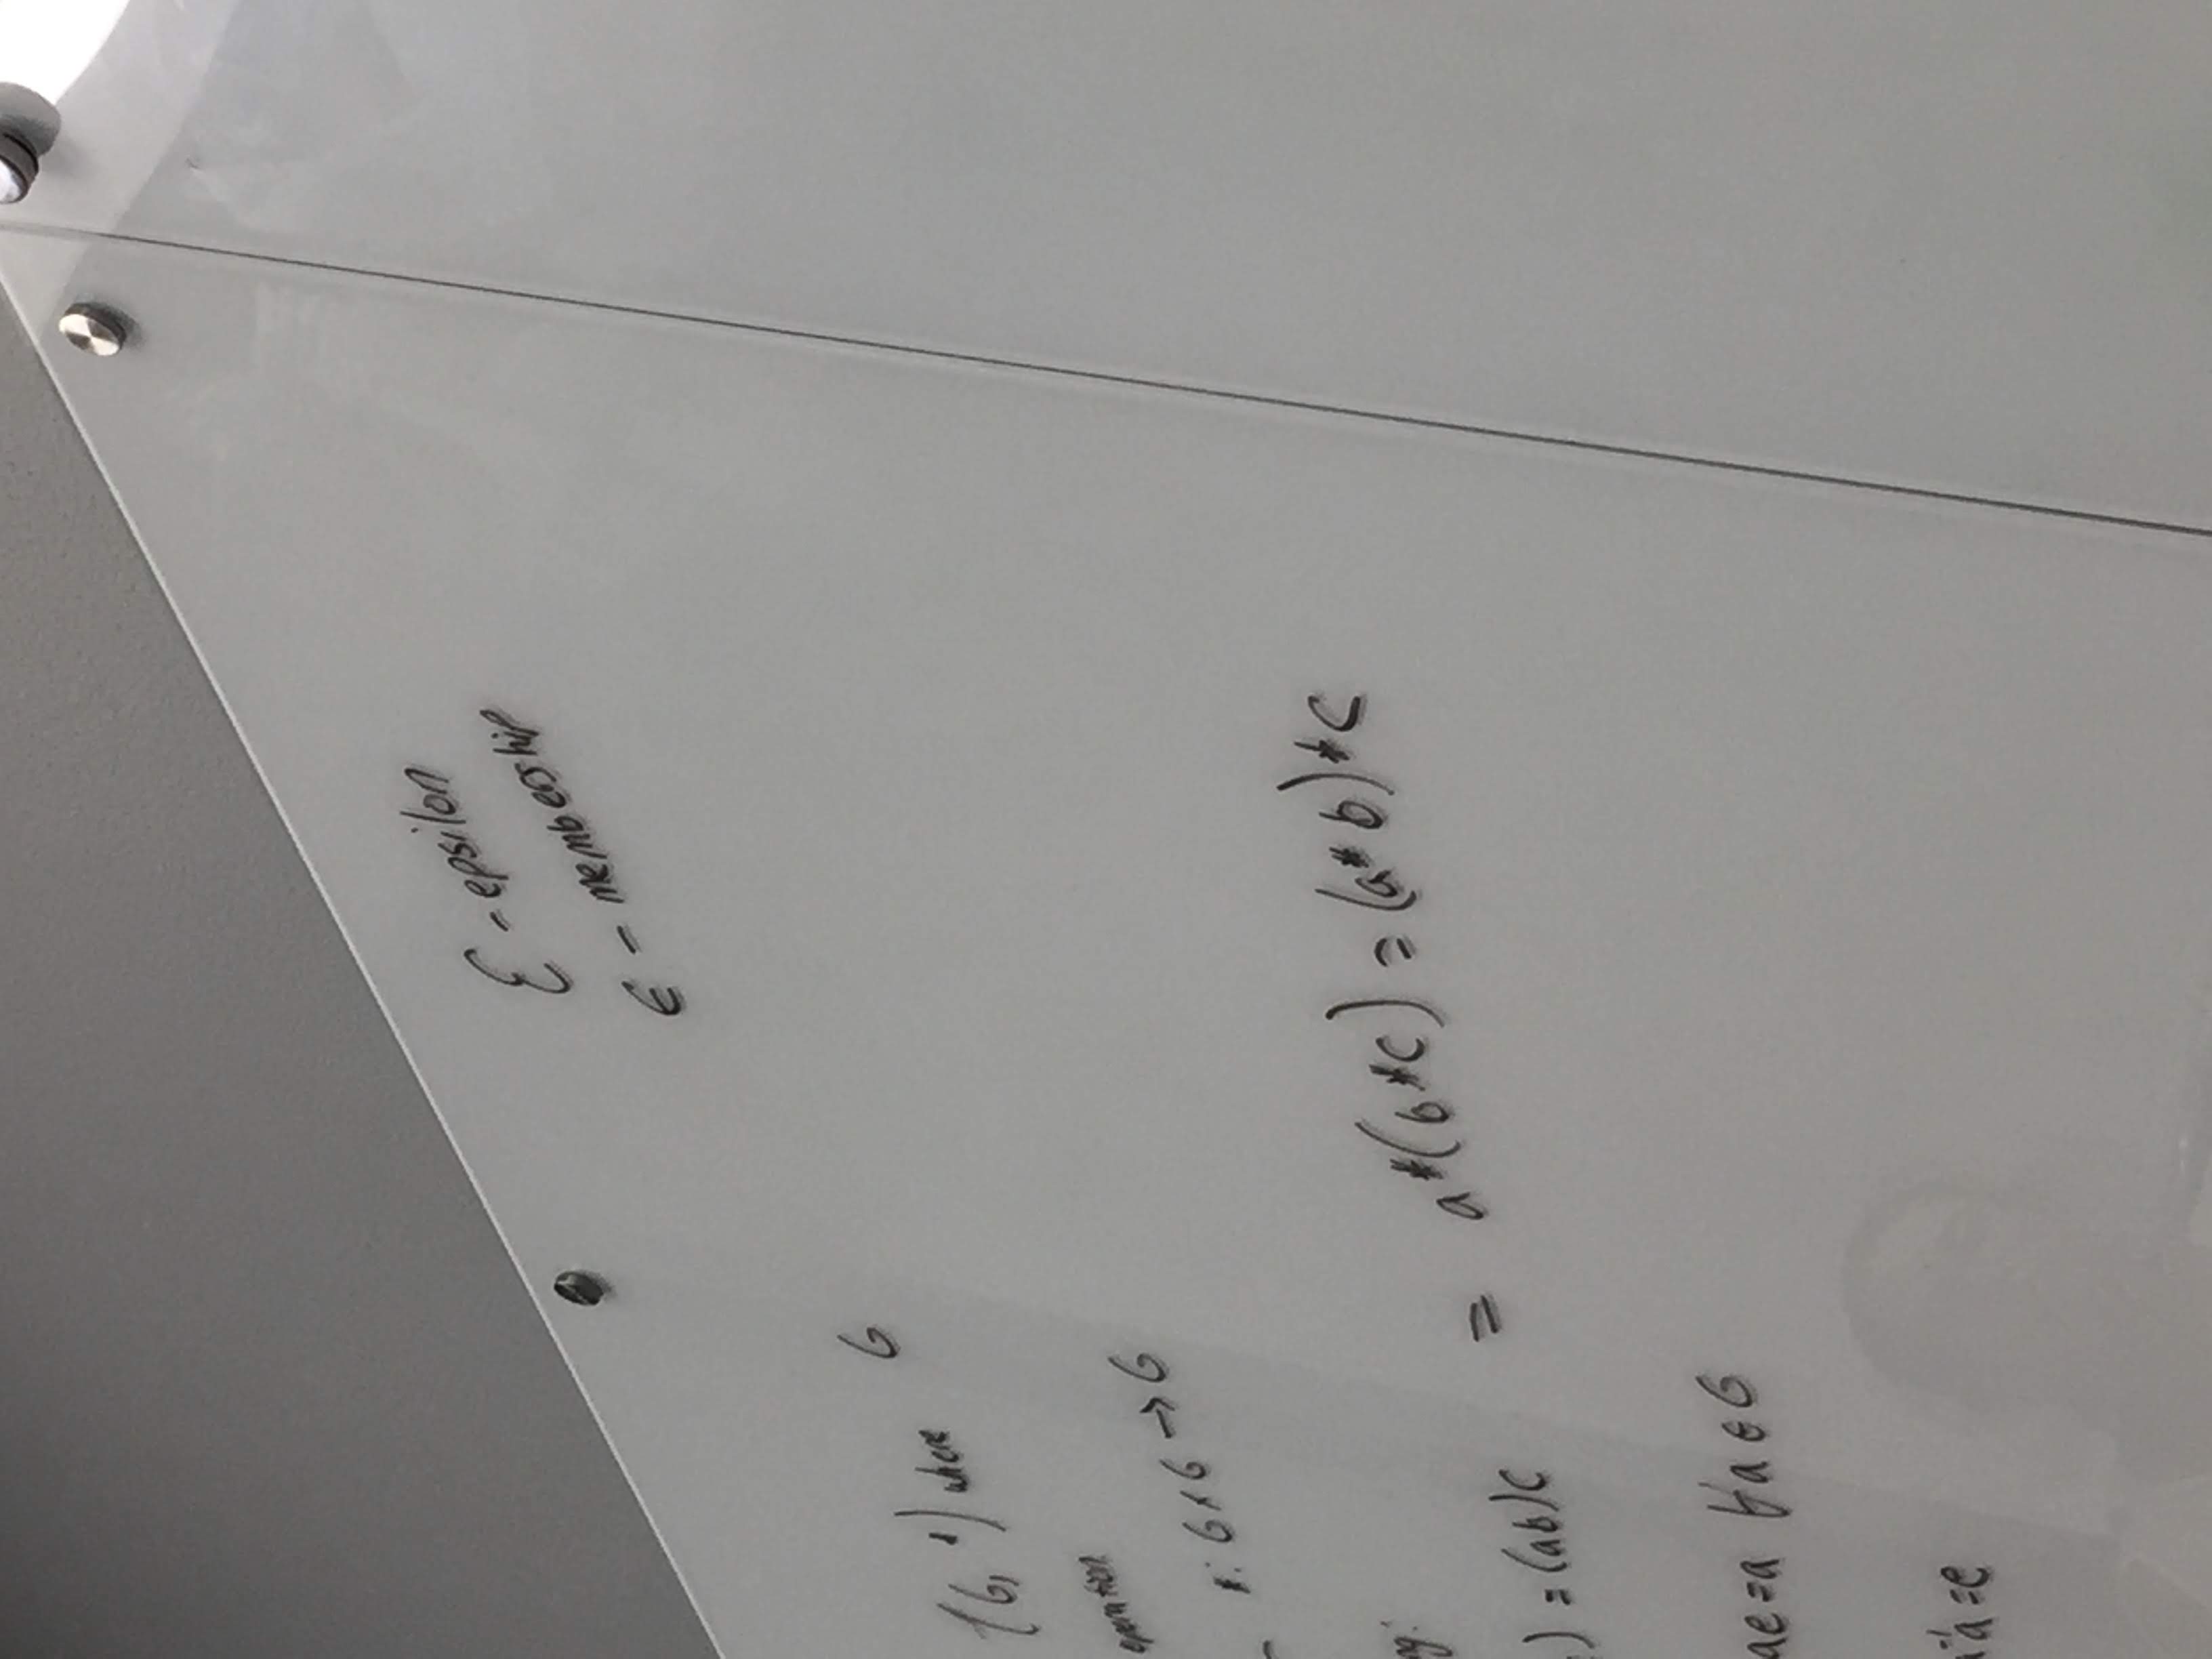 ε - epsilon
∈ - membership
(G, *) where G
operation
*: G × G → G
= a*(b*c) = (a*b)*c
) = (ab)c
ae = a ∀a ∈ G
⁻¹a = e